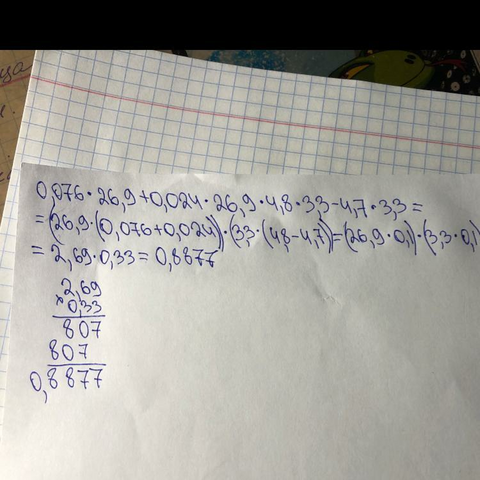 ща
0,076·26,9+0,024·26,9·4,8·3,3-4,7·3,3=
=(26,9·(0,076+0,024))·(3,3·(4,8-4,7))=(26,9·0,1)·(3,3·0,1)
=2,69·0,33=0,8877
2,69
×0,33
807
807
0,8877